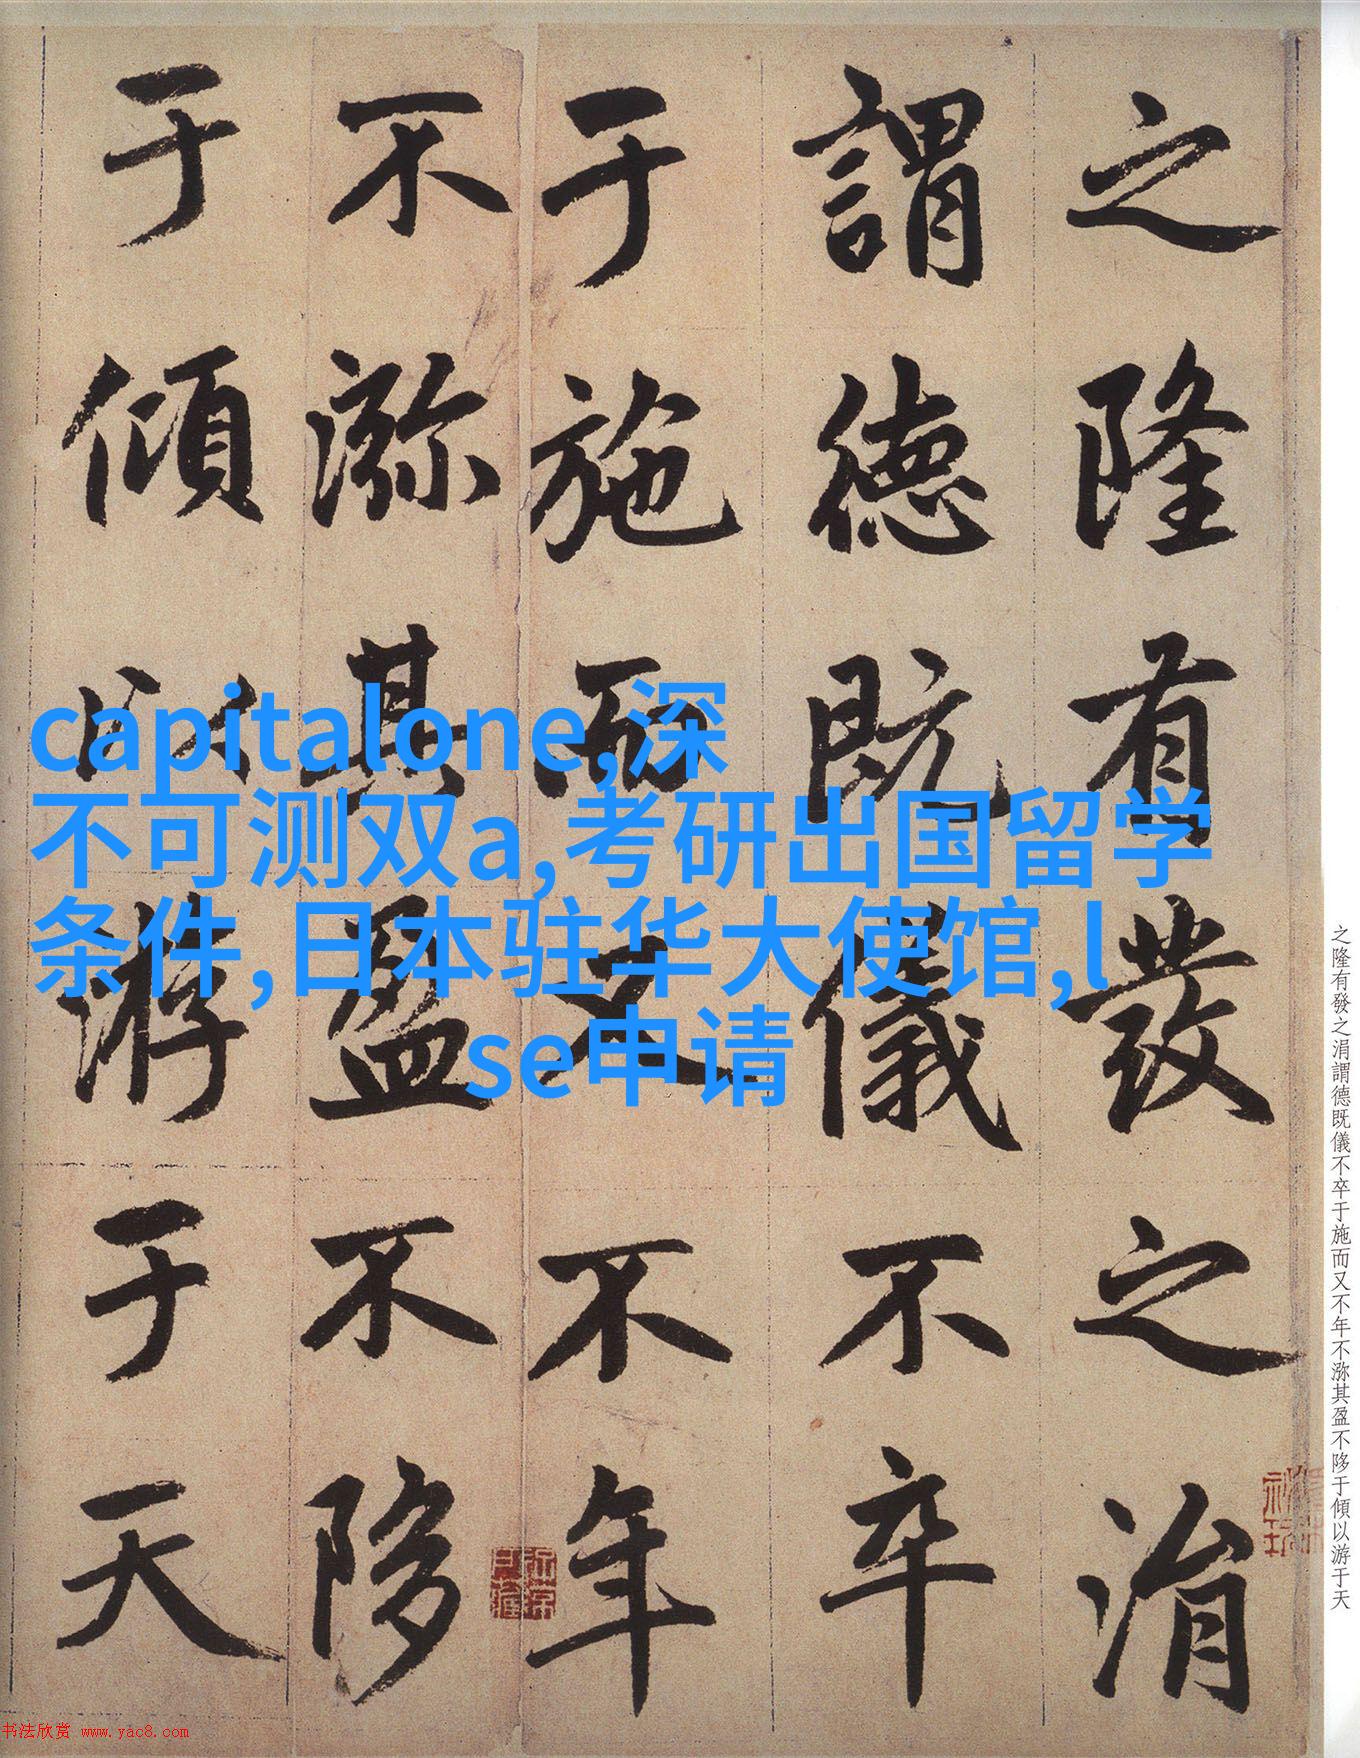 之隆有發之涓
謂德既儀不卒
于施而又不年
不沵其盈不陊
于傾以游于天
capitalone,深
不可测双a,考研出国留学
条件,日本驻华大使馆,l
se申请
之隆有發之涓謂德既儀不卒于施而又不年不沵其盈不陊于傾以游于天
书法欣赏 www.yac8.com